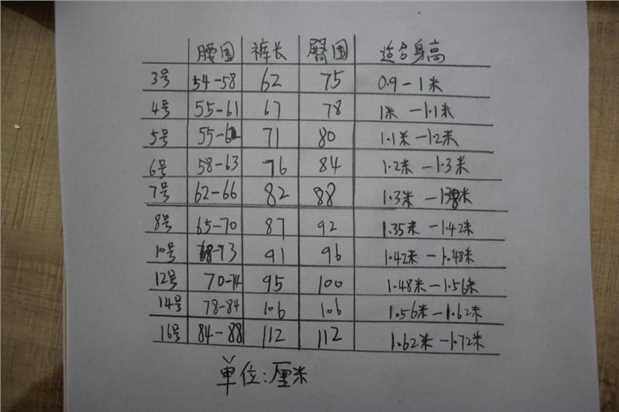 腰围 裤长 臀围 适合身高
3号 54-58 62 75 0.9-1米
4号 55-61 67 78 1米-1.1米
5号 55-62 71 80 1.1米-1.2米
6号 58-63 76 84 1.2米-1.3米
7号 62-66 82 88 1.3米
8号 65-70 87 92 1.35米-1.42米
10号 68-73 91 96 1.42米-1.48米
12号 70-74 95 100 1.48米-1.56米
14号 78-84 106 106 1.56米-1.62米
16号 84-88 112 112 1.62米-1.72米
单位:厘米